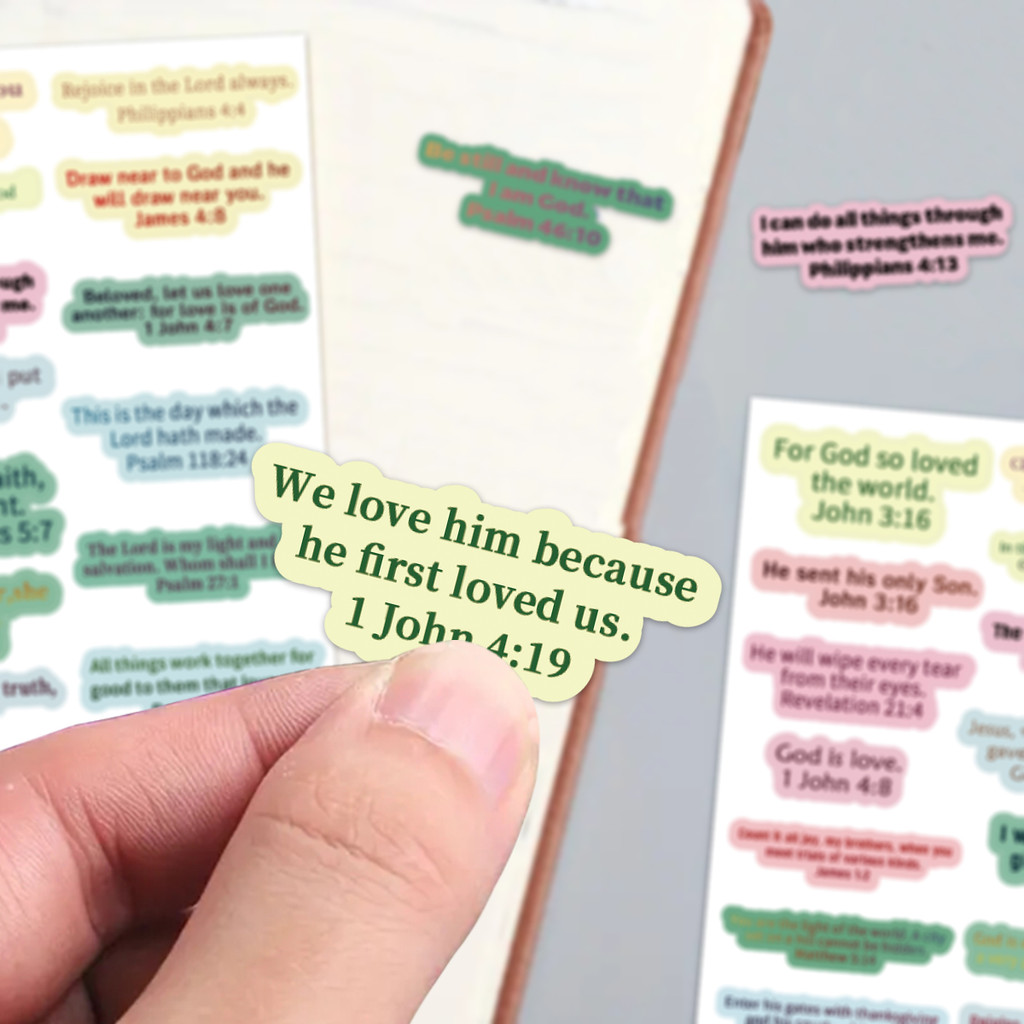 ou
Rejoice in the Lord always.
Philippians 4:4
Draw near to God and he
will draw near you.
James 4:8
ugh
me.
Beloved, let us love one
another: for love is of God.
1 John 4:7
put
This is the day which the
Lord hath made.
Psalm 118:24
aith,
nt.
s 5:7
The Lord is my light and
salvation. Whom shall I
Psalm 27:1
r,she
truth,
All things work together for
good to them that
Be still and know that
I am God.
Psalm 46:10
I can do all things through
him who strengthens me.
Philippians 4:13
We love him because
he first loved us.
1 John 4:19
For God so loved
the world.
John 3:16
He sent his only Son.
John 3:16
He will wipe every tear
from their eyes.
Revelation 21:4
God is love.
1 John 4:8
Count it all joy, my brothers, when you
meet trials of various kinds.
James 1:2
You are the light of the world. A city
set on a hill cannot be hidden.
Matthew 5:14
Enter his gates with thanksgiving
The
Jesus,
gave
I w
God is